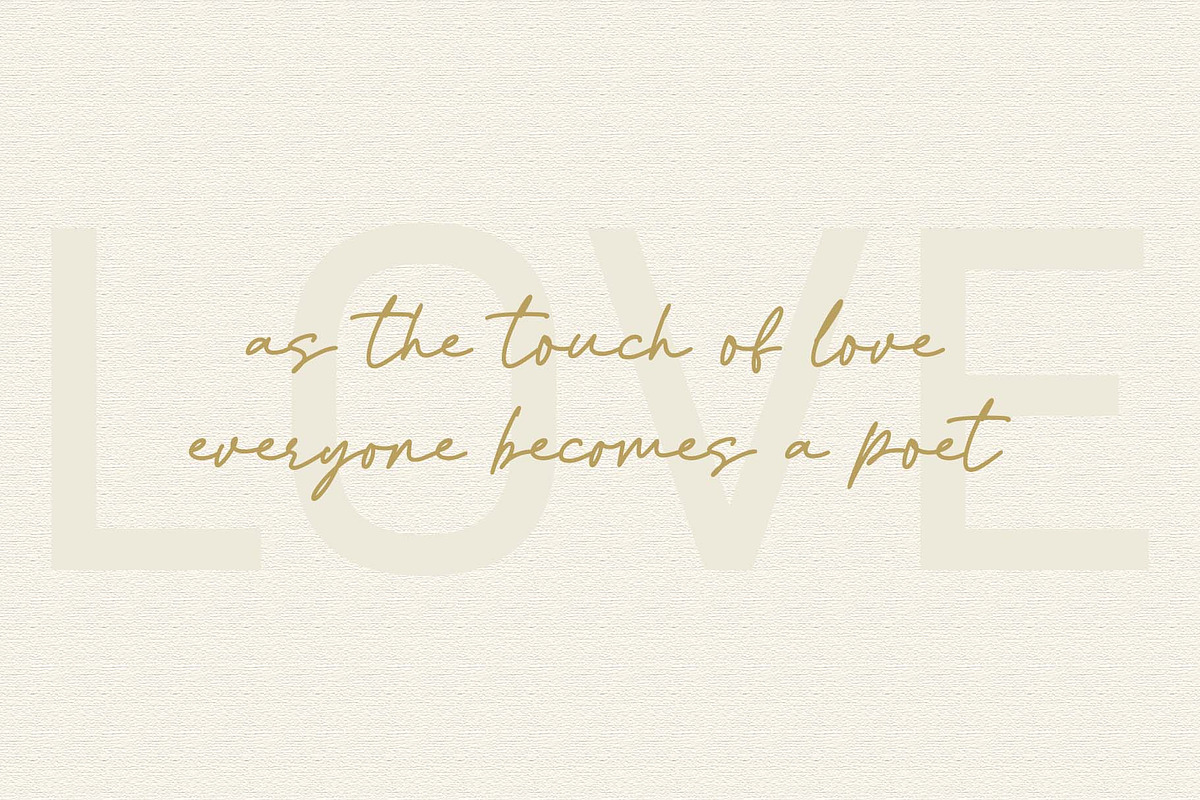 LOVE
as the touch of love
everyone becomes a poet